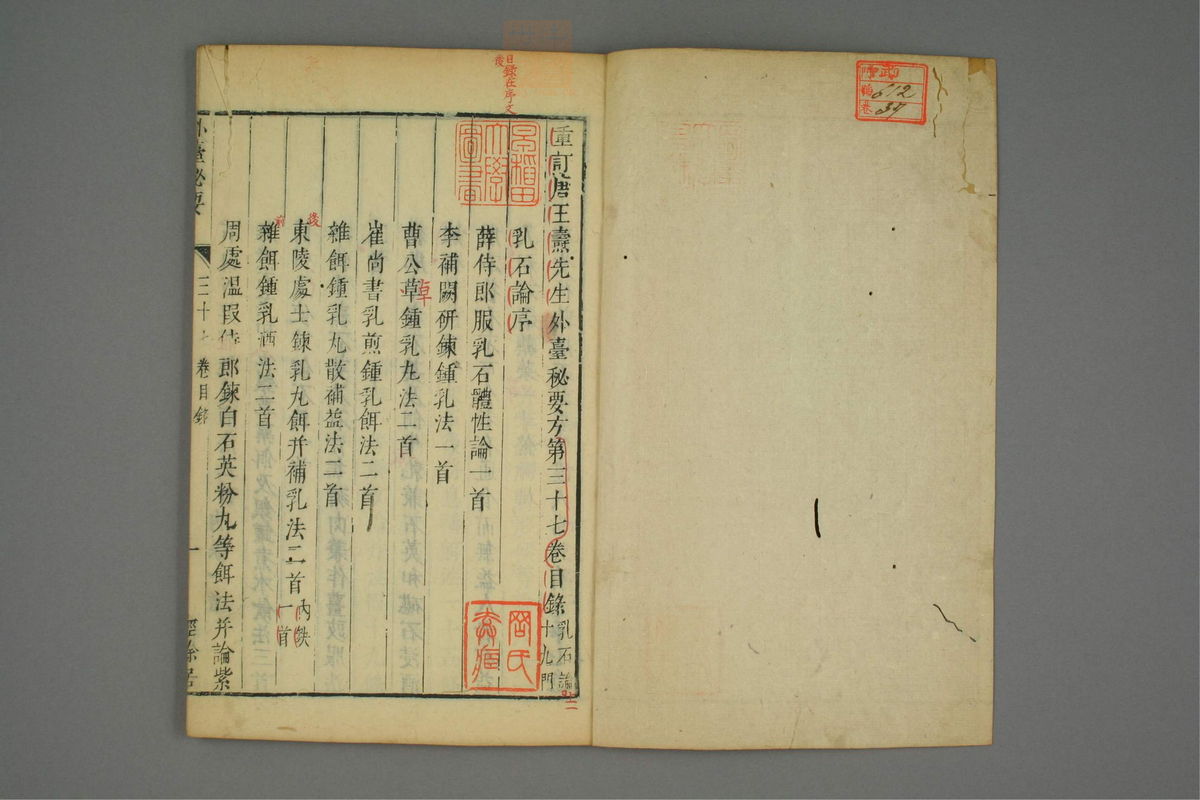 重訂唐王燾先生外臺秘要方第三十七卷目錄 乳石論
十九門
乳石論序
薛侍郎服乳石體性論一首
李補闕研鍊鍾乳法一首
曹公草鍾乳丸法二首
崔尚書乳煎鍾乳餌法二首
雜餌鍾乳丸散補益法三首
東陵處士鍊乳丸餌并補乳法二首 內缺
一首
雜餌鍾乳酒法二首
周處溫授侍郎鍊白石英粉丸等餌法并論紫
外臺秘要
三十七
卷目錄
一
經餘居
目錄在序文
後
卓
後
前
十二
早稻田
大學
圖書
612
39